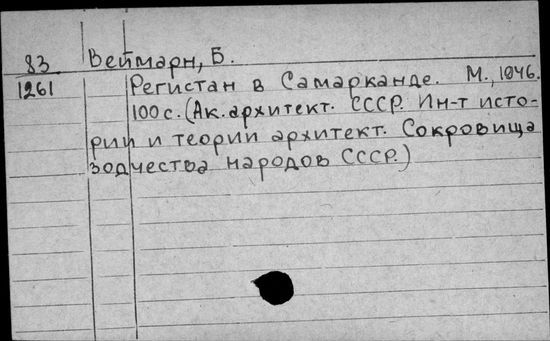 83 Веймарн, Б.
1261 Регистан в Самарканде. М., 1946.
100 с. (Ак. архитект. СССР. Ин-т исто-
рии и теории архитект. Сокровища
зодчества народов СССР.)